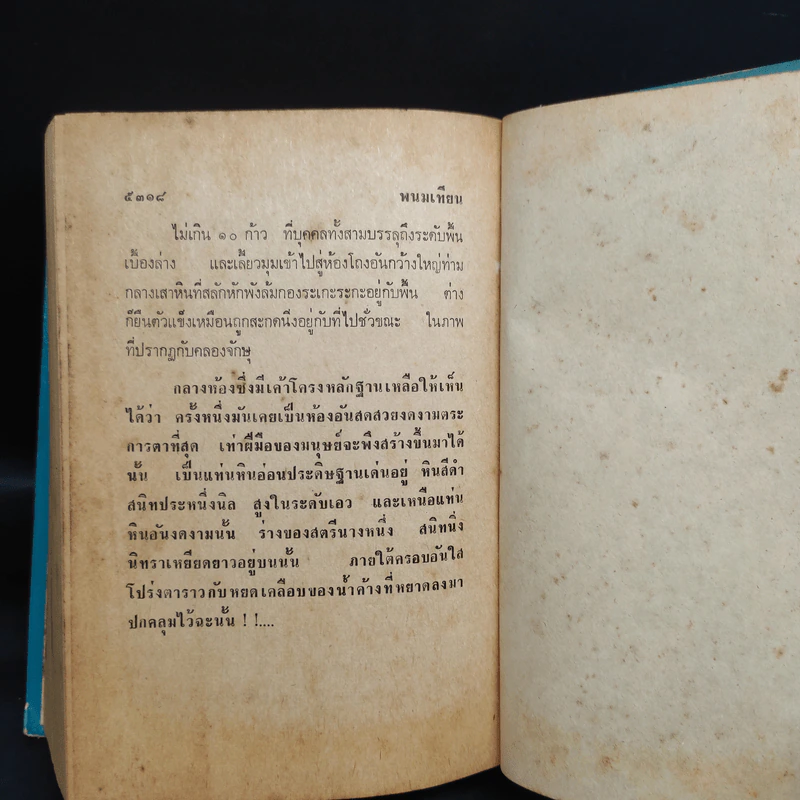 ๕๓๑๘ พนมเทียน
ไม่เกิน ๑๐ ก้าว ที่บุคคลทั้งสามบรรลุถึงระดับพื้น
เบื้องล่าง และเลี้ยวมุมเข้าไปสู่ห้องโถงอันกว้างใหญ่ท่าม
กลางเสาหินที่สลักหักพังล้มกองระเกะระกะอยู่กับพื้น ต่าง
ก็ยืนตัวแข็งเหมือนถูกสะกดนิ่งอยู่กับที่ไปชั่วขณะ ในภาพ
ที่ปรากฏกับคลองจักษุ
กลางห้องซึ่งมีเค้าโครงหลักฐานเหลือให้เห็น
ได้ว่า ครั้งหนึ่งมันเคยเป็นห้องอันสดสวยงดงามตระ
การตาที่สุด เท่าฝีมือของมนุษย์จะพึงสร้างขึ้นมาได้
นั้น เป็นแท่นหินอ่อนประดิษฐานเด่นอยู่ หินสีดำ
สนิทประหนึ่งนิล สูงในระดับเอว และเหนือแท่น
หินอันงดงามนั้น ร่างของสตรีนางหนึ่ง สนิทนิ่ง
นิทราเหยียดยาวอยู่บนนั้น ภายใต้ครอบอันใส
โปร่งดาราวกับหยดเคลือบของน้ำค้างที่หยาดลงมา
ปกคลุมไว้ฉะนั้น ! !....